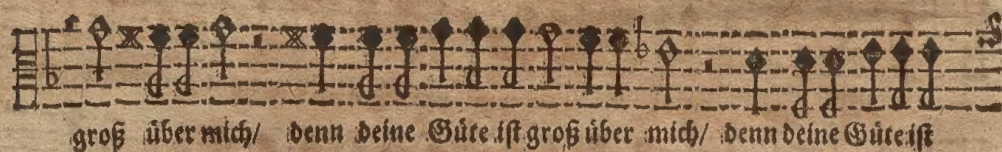 groß über mich/ denn deine Güte ist groß über mich/ denn deine Güte ist